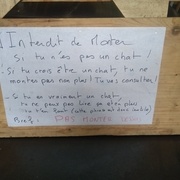 Interdit de Monter
Si tu n'es pas un chat !
Si tu crois être un chat, tu ne
montes pas non plus ! Tu vas consulter !
- Si tu es vraiment un chat,
tu ne peux pas lire ça et en plus
tu t'en fout
Bref : PAS MONTER